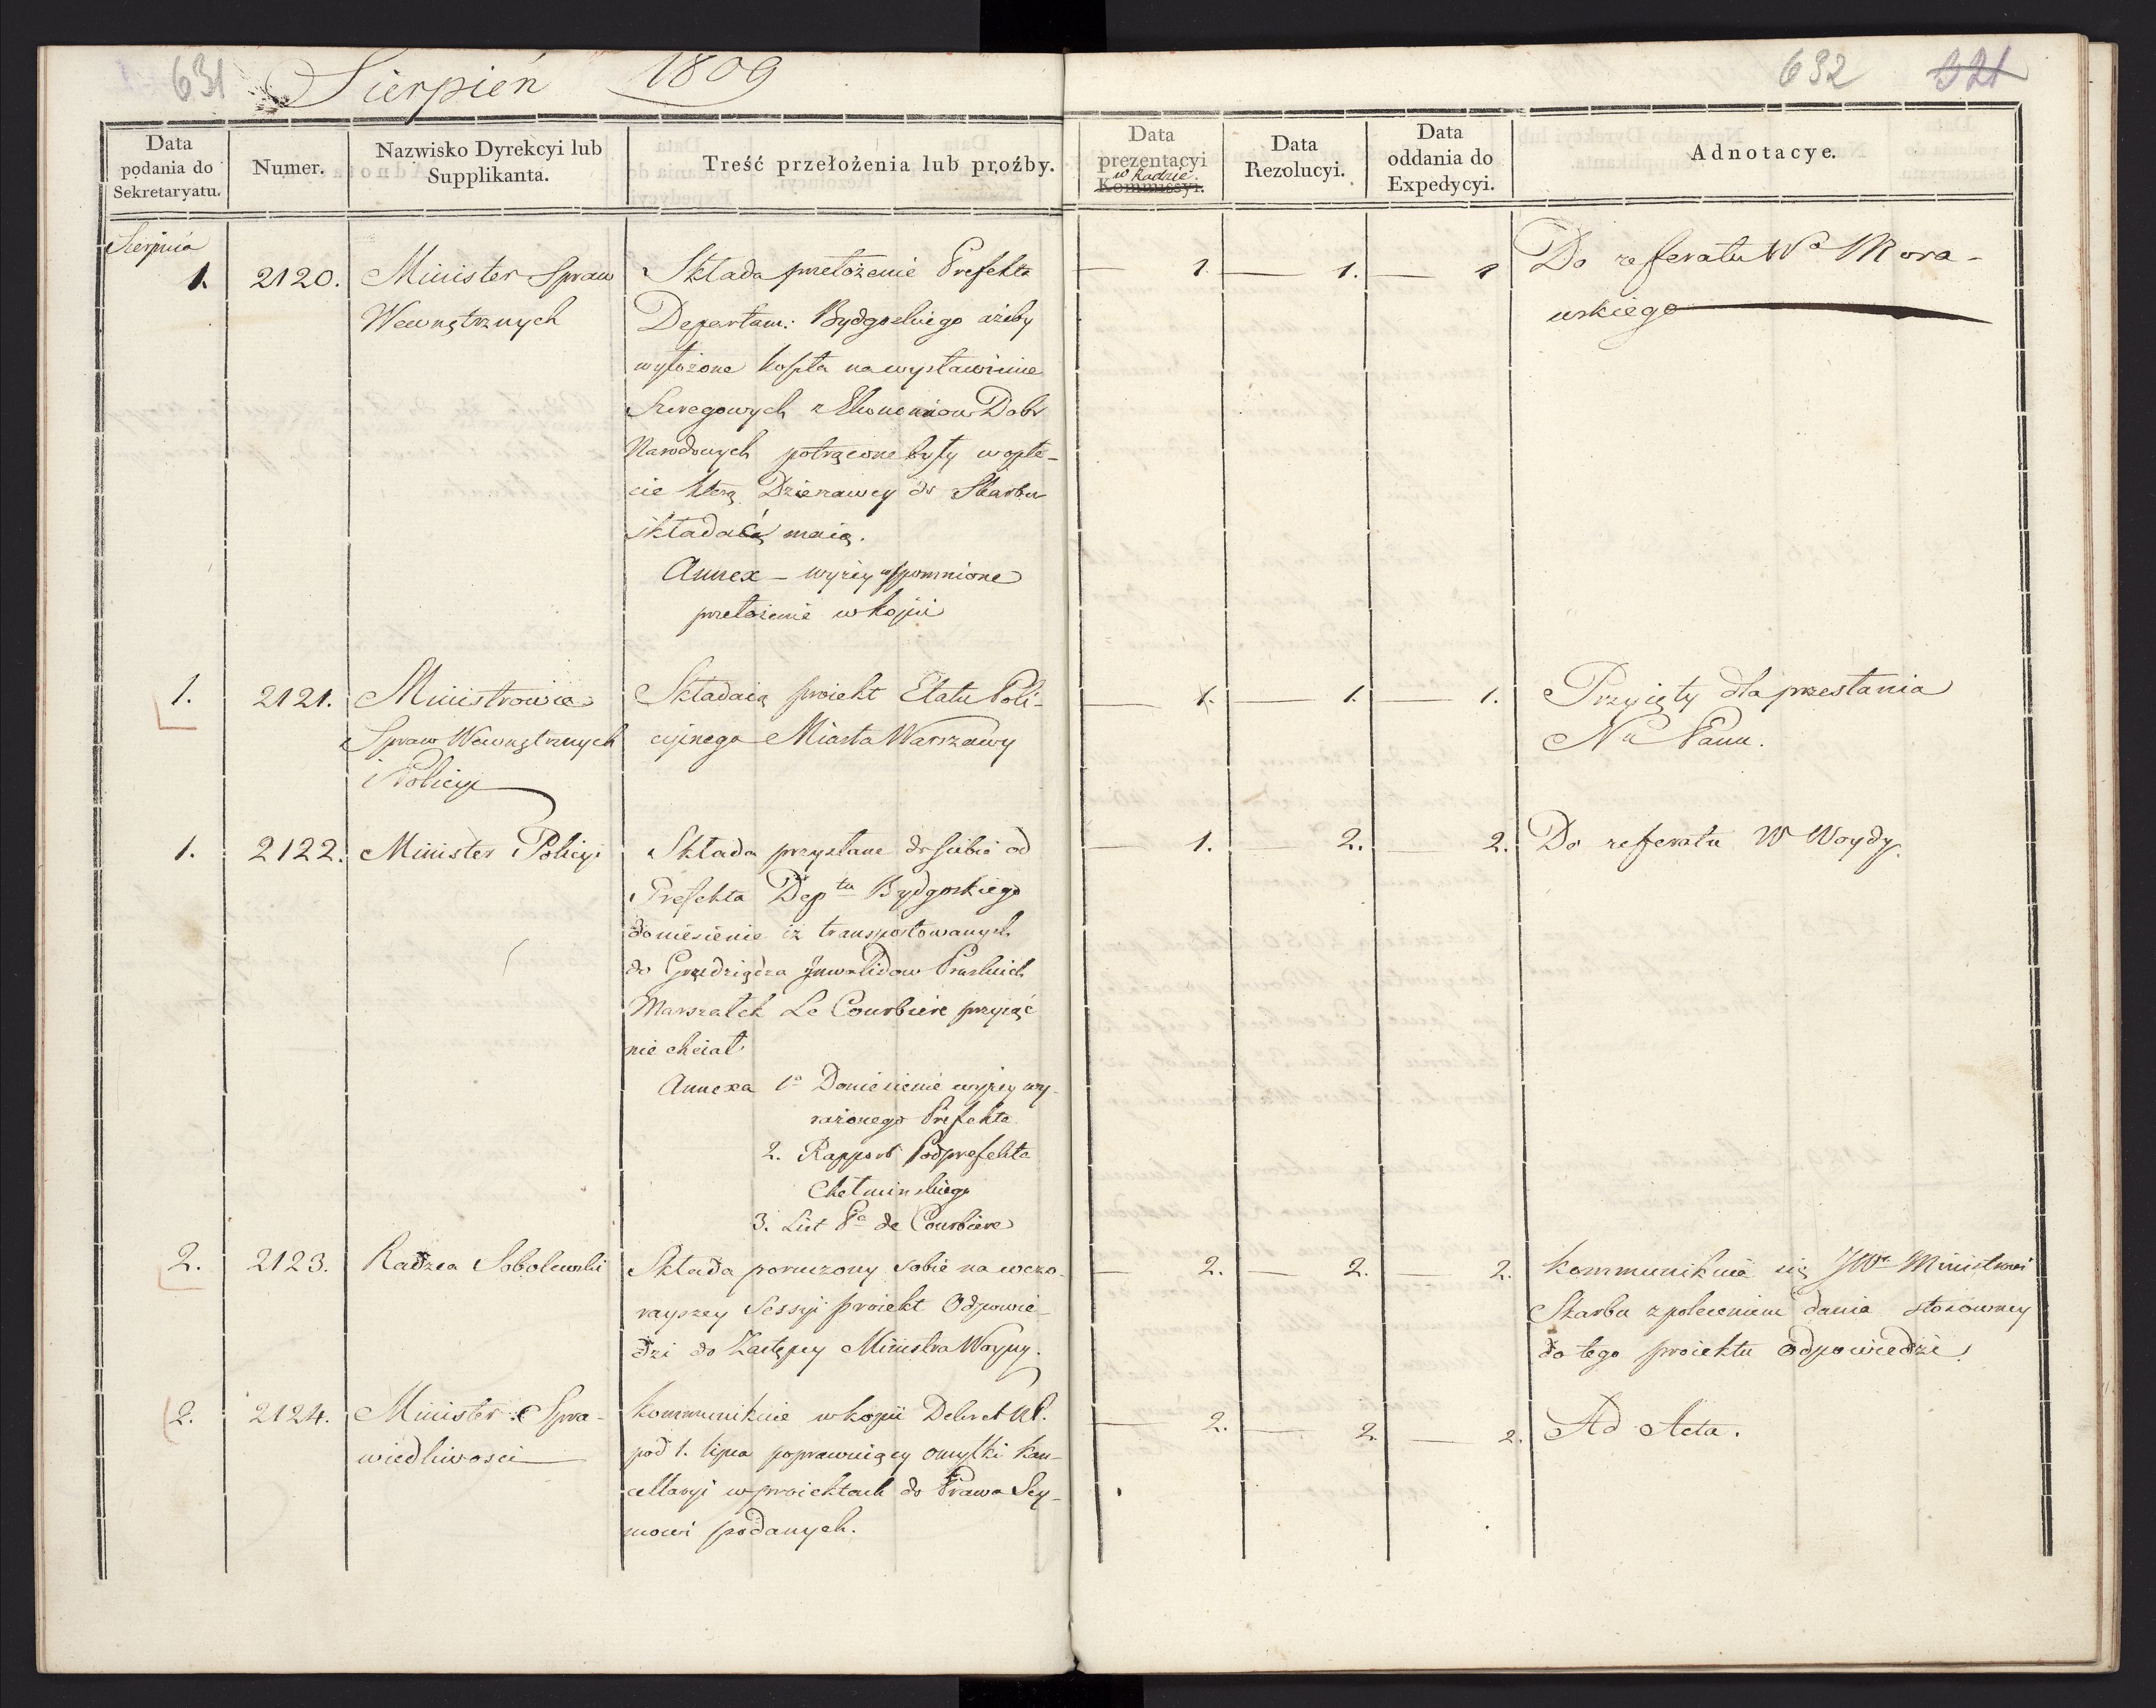 631 Sierpień 1809
632 321
Data podania do Sekretaryatu.
Numer.
Nazwisko Dyrekcyi lub Supplikanta.
Treść przełożenia lub proźby.
Data prezentacyi w Radzie. Kommissyi.
Data Rezolucyi.
Data oddania do Expedycyi.
Adnotacye.
Sierpnia
1. 2120. Minister Spraw
Wewnętrznych
Składa przełożenie Prefekta
Departam: Bydgoskiego ażeby
wyłożone koszta na wystawienie
Szeregowych z Ekonomiow Dobr
Narodowych potrącone były w opła-
cie którą Dzierzawcy do Skarbu
składać maią.
Annex – wyżey wspomnione
przełożenie w kopii
1. 1. 1
Do referatu Wo Mora-
wskiego
1. 2121. Ministrowie
Spraw Wewnętrznych
i Policyi
Składaią proiekt Etatu Poli-
cyinego Miasta Warszawy
1. 1. 1.
Przyięty dla przesłania
Nu Panu.
1. 2122. Minister Policyi
Składa przysłane do siebie od
Prefekta Deptu Bydgoskiego
doniesienie iż transportowanych
do Grudziądza Jnwalidow Pruskich
Marszałek Le Courbiere przyiąć
nie chciał.
Annexa 1o Doniesienie wyżey wy-
rażonego Prefekta
2. Rapport Podprefekta
Chełminskiego
3. List Pa de Courbiere
1. 2. 2.
Do referatu W Woydy.
2. 2123. Radzca Sobolewski
Składa poruczony sobie na wczo-
rayszey Sessyi proiekt Odpowie-
dzi do Zastępcy Ministra Woyny.
2. 2. 2.
Kommunikuie się JWu Ministrowi
Skarbu z poleceniem dania stosowney
do tego proiektu odpowiedzi.
2. 2124. Minister Spra-
wiedliwosci
Kommunikuie w kopii Dekret NP.
pod 1. lipca poprawuiący omyłki kan-
cellaryi w proiektach do Prawa Sey-
mowi podanych.
2. 2. 2.
Ad Acta.